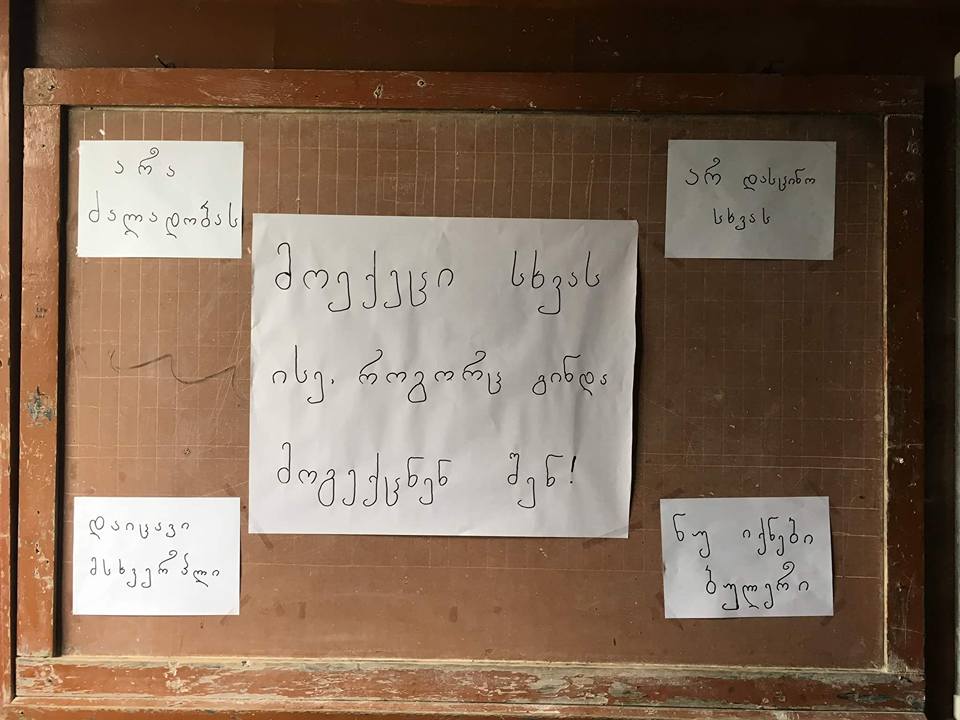 არა
ძალადობას
არ დასცინო
სხვას
მოექეცი სხვას
ისე, როგორც გინდა
მოგექცნენ შენ!
დაიცავი
მსხვერპლი
ნუ იქნები
ბულერი